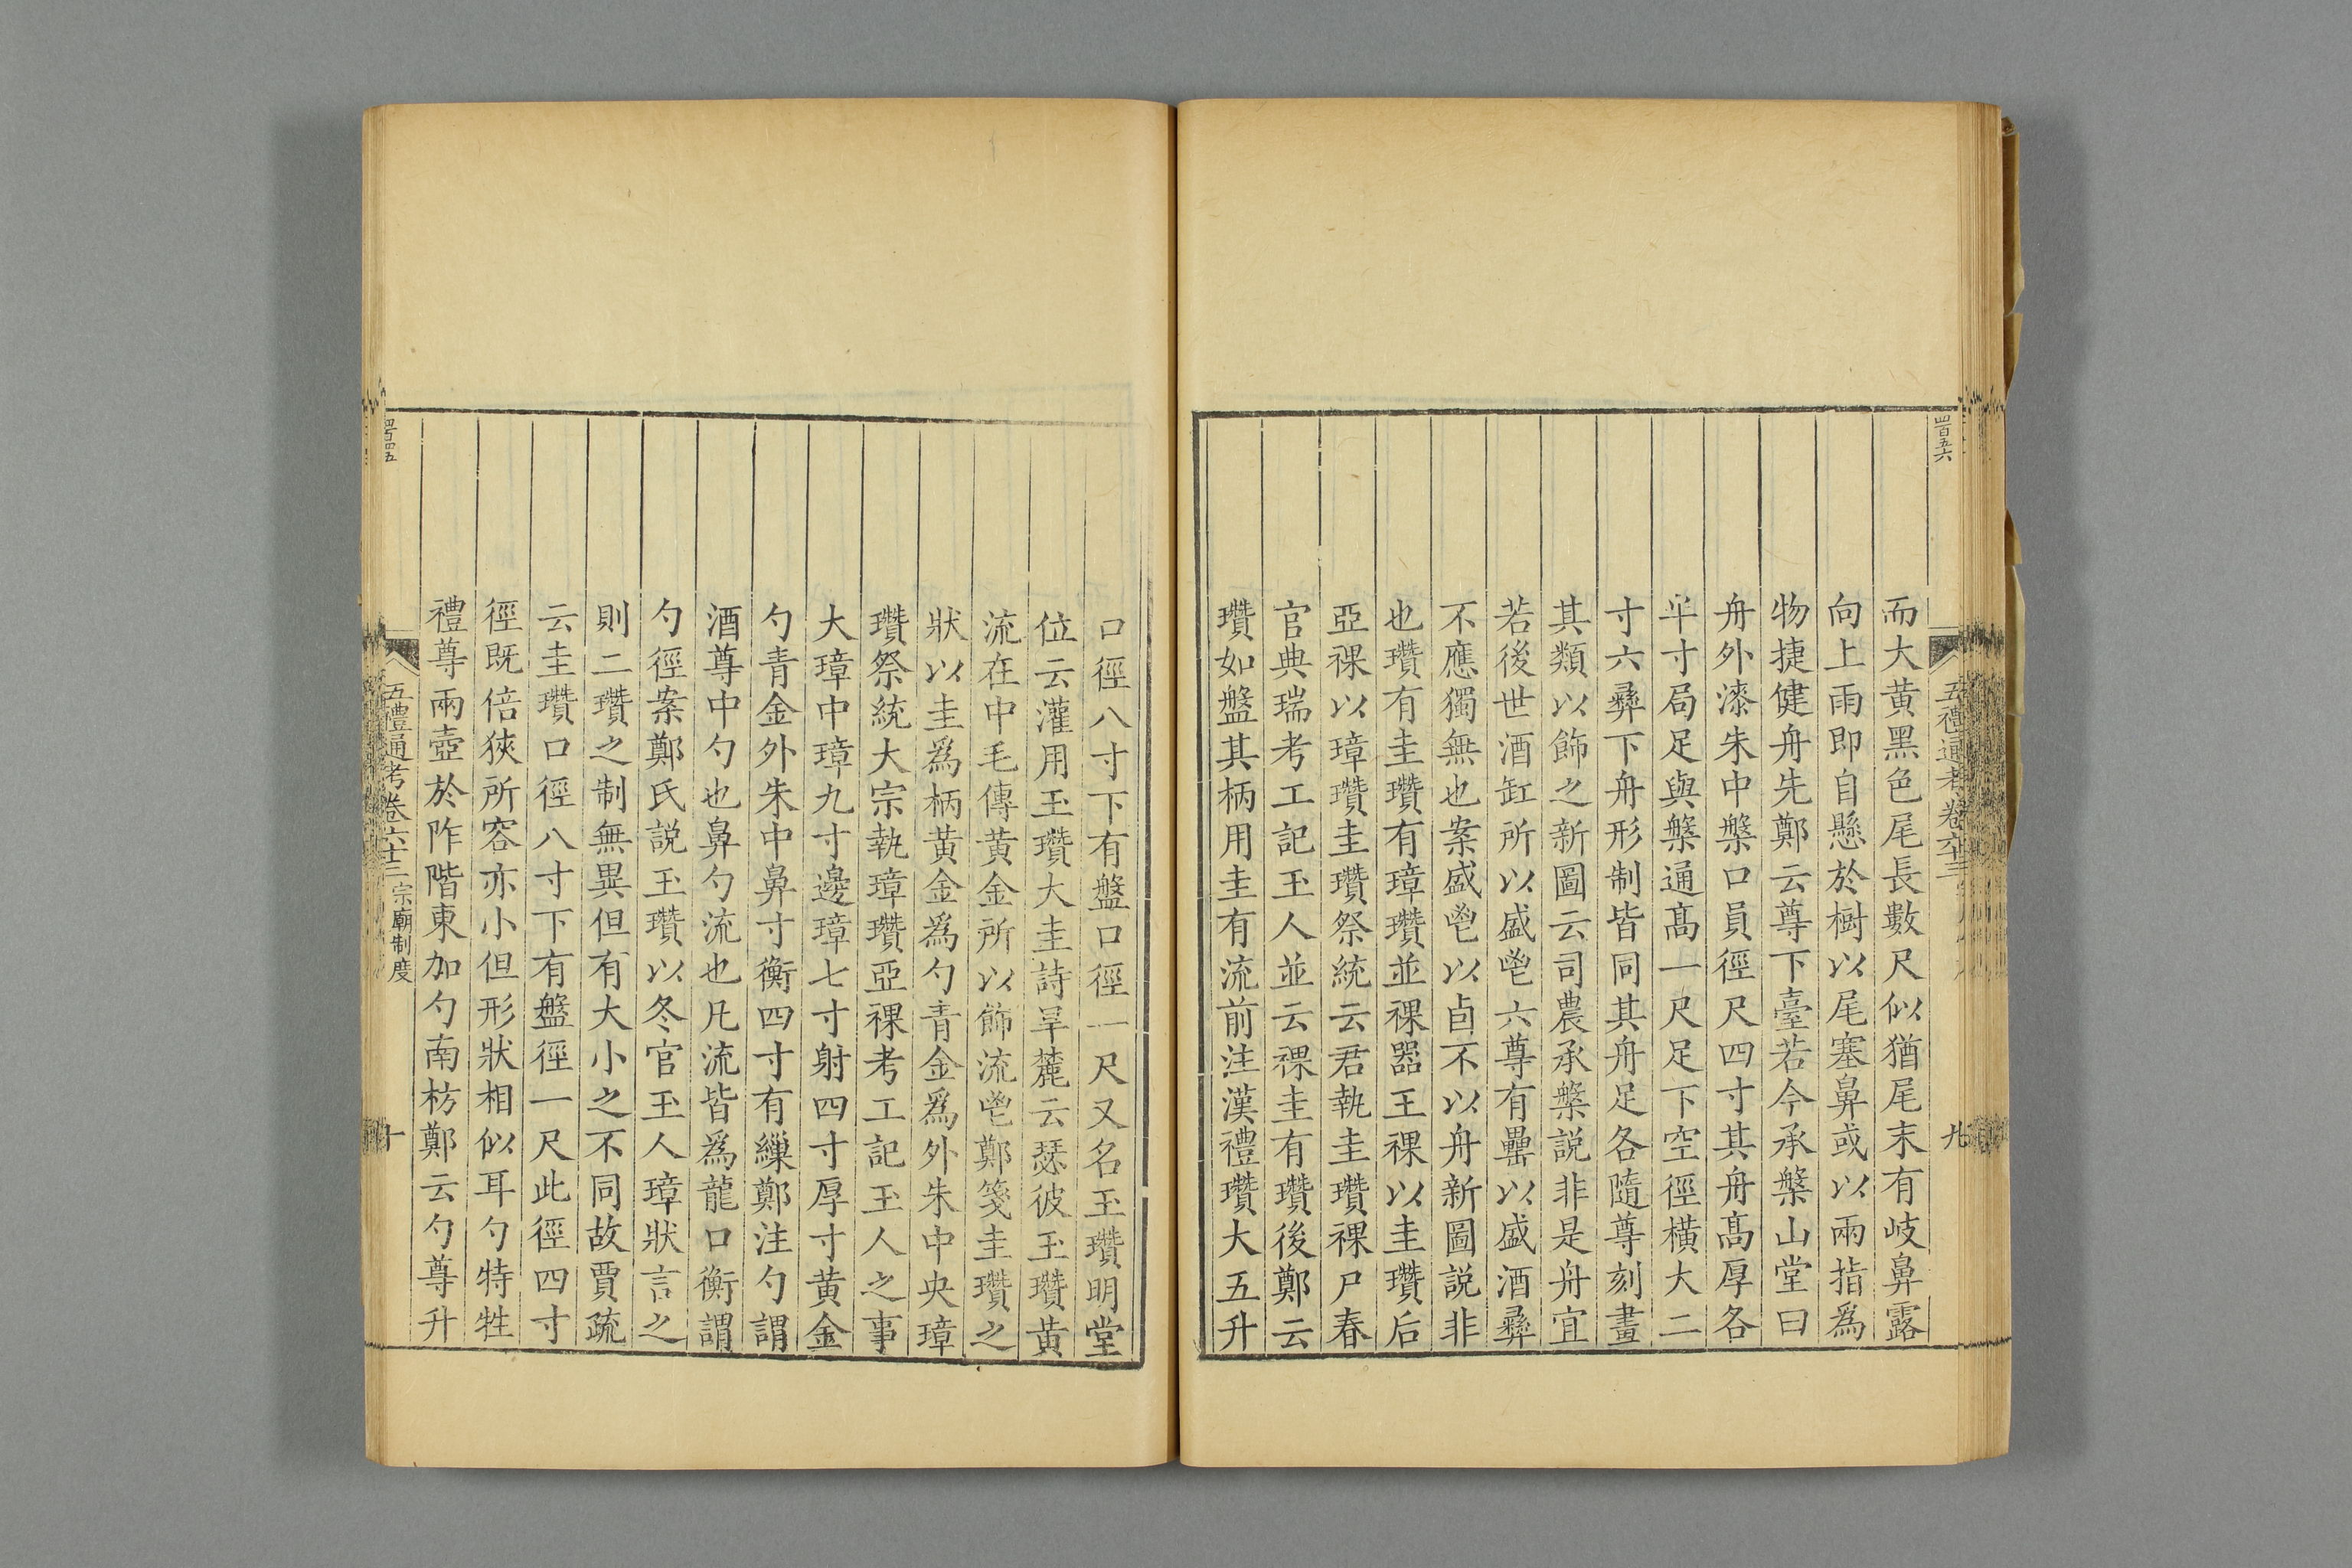 四百五六
五禮通考卷六十三
九
而大黃黑色尾長數尺似猶尾末有岐鼻露
向上雨即自懸於樹以尾塞鼻或以兩指爲
物捷健舟先鄭云尊下臺若今承槃山堂曰
舟外漆朱中槃口員徑尺四寸其舟髙厚各
半寸局足與槃通髙一尺足下空徑橫大二
寸六彝下舟形制皆同其舟足各隨尊刻畫
其類以飾之新圖云司農承槃説非是舟宜
若後世酒缸所以盛鬯六尊有罍以盛酒彝
不應獨無也案盛鬯以卣不以舟新圖説非
也瓚有圭瓚有璋瓚並祼器王祼以圭瓚后
亞祼以璋瓚圭瓚祭統云君執圭瓚祼尸春
官典瑞考工記玉人並云祼圭有瓚後鄭云
瓚如盤其柄用圭有流前注漢禮瓚大五升
口徑八寸下有盤口徑一尺又名玉瓚明堂
位云灌用玉瓚大圭詩旱麓云瑟彼玉瓚黃
流在中毛傳黃金所以飾流鬯鄭箋圭瓚之
狀以圭爲柄黃金爲勺青金爲外朱中央璋
瓚祭統大宗執璋瓚亞祼考工記玉人之事
大璋中璋九寸邊璋七寸射四寸厚寸黃金
勺青金外朱中鼻寸衡四寸有繅鄭注勺謂
酒尊中勺也鼻勺流也凡流皆爲龍口衡謂
勺徑案鄭氏説玉瓚以冬官玉人璋狀言之
則二瓚之制無異但有大小之不同故賈疏
云圭瓚口徑八寸下有盤徑一尺此徑四寸
徑既倍狹所容亦小但形狀相似耳勺特牲
禮尊兩壺於阼階東加勺南枋鄭云勺尊升
五禮通考卷六十三 宗廟制度
十